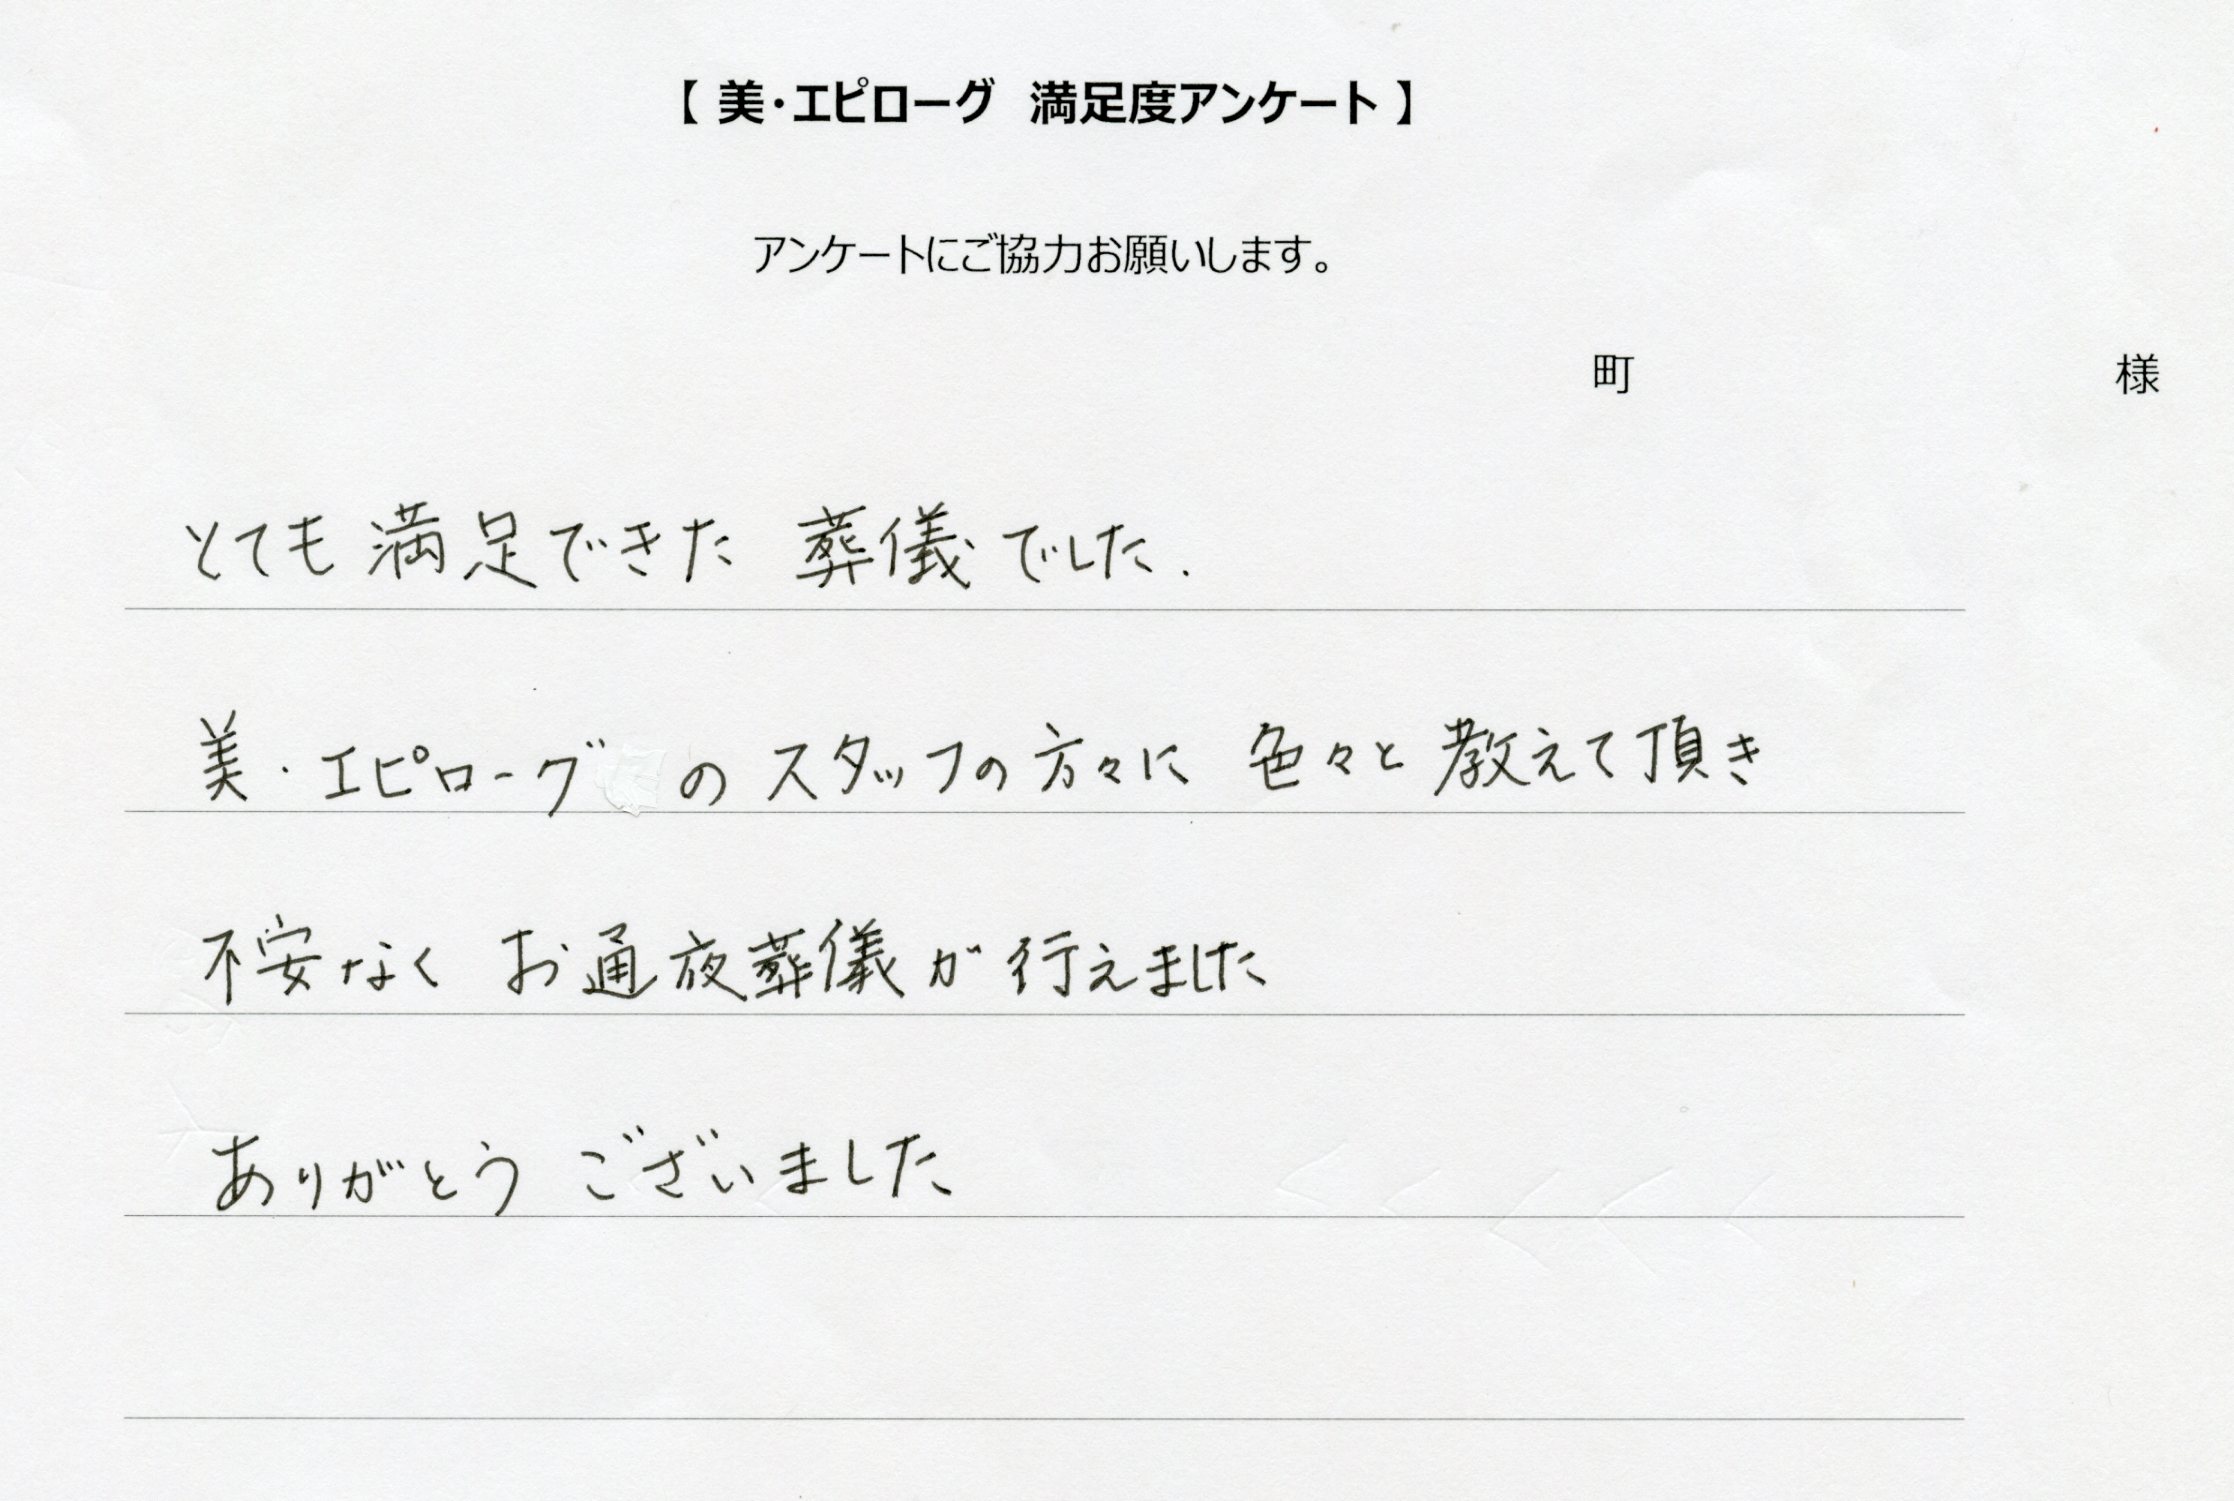 【 美・エピローグ　満足度アンケート 】
アンケートにご協力お願いします。
町　様
とても満足できた 葬儀でした.
美・エピローグ の スタッフの方々に 色々と 教えて頂き
不安なく お通夜葬儀が行えました
ありがとう ございました